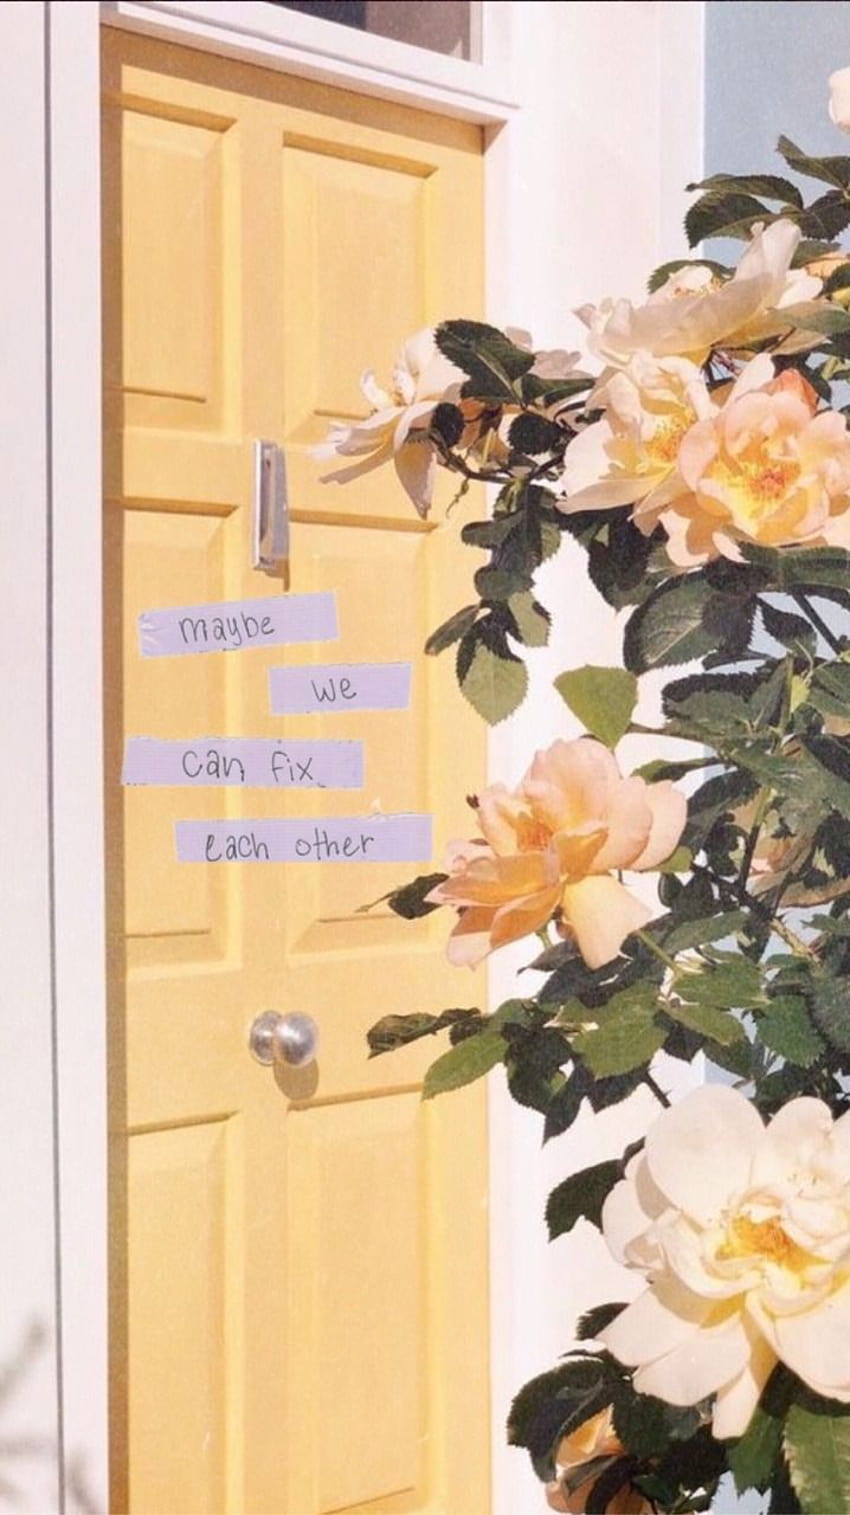 maybe
we
can fix
each other